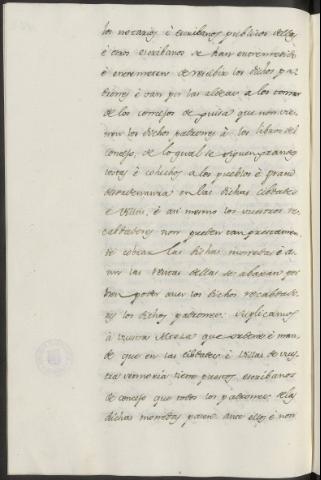 los notarios è escribanos publicos dellas
è otros escribanos se han entremetido
è entremeten de recibir los dichos pa-
trones è van por las aldeas a los tomar
de los concejos de guisa que non vie-
nen los dichos patrones à los libros del
concejo, de lo qual se siguen grandes
costas è cohechos a los pueblos è grand
desordenanza en las dichas cibdades
è villas, è asi mesmo los vuestros re-
cabdadores non pueden tan prestamen-
te cobrar las dichas monedas è à
un las rentas dellas se abaxan por
non poder aver los dichos recabdado-
res los dichos patrones. Suplicamos
à vuestra Alteza que ordene è man-
de que en las cibdades è villas de vues-
tra sennoria tiene puestos escribanos
de concejo que todos los patrones de las
dichas monedas pasen ante ellos, è non